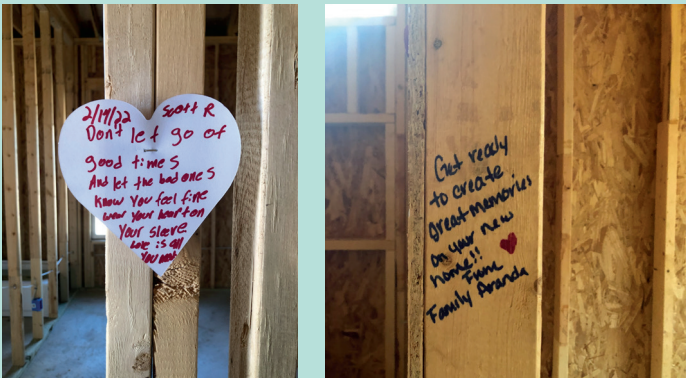 2/14/22 Scott R
Don't let go of
good times
And let the bad ones
know you feel fine
wear your heart on
Your sleeve
Love is all
You need
Get ready
to create
great memories
on your new
home!!
Family Aranda